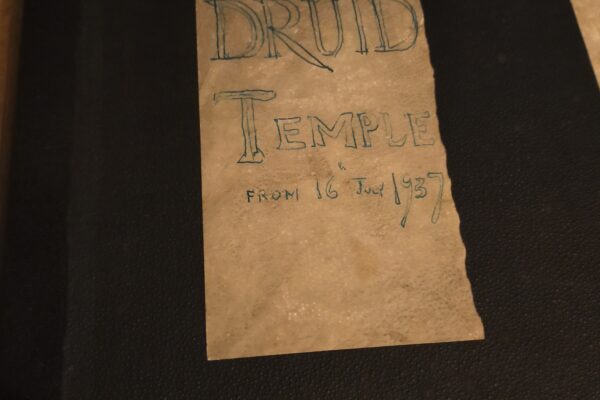 DRUID
TEMPLE
FROM 16th July 1937